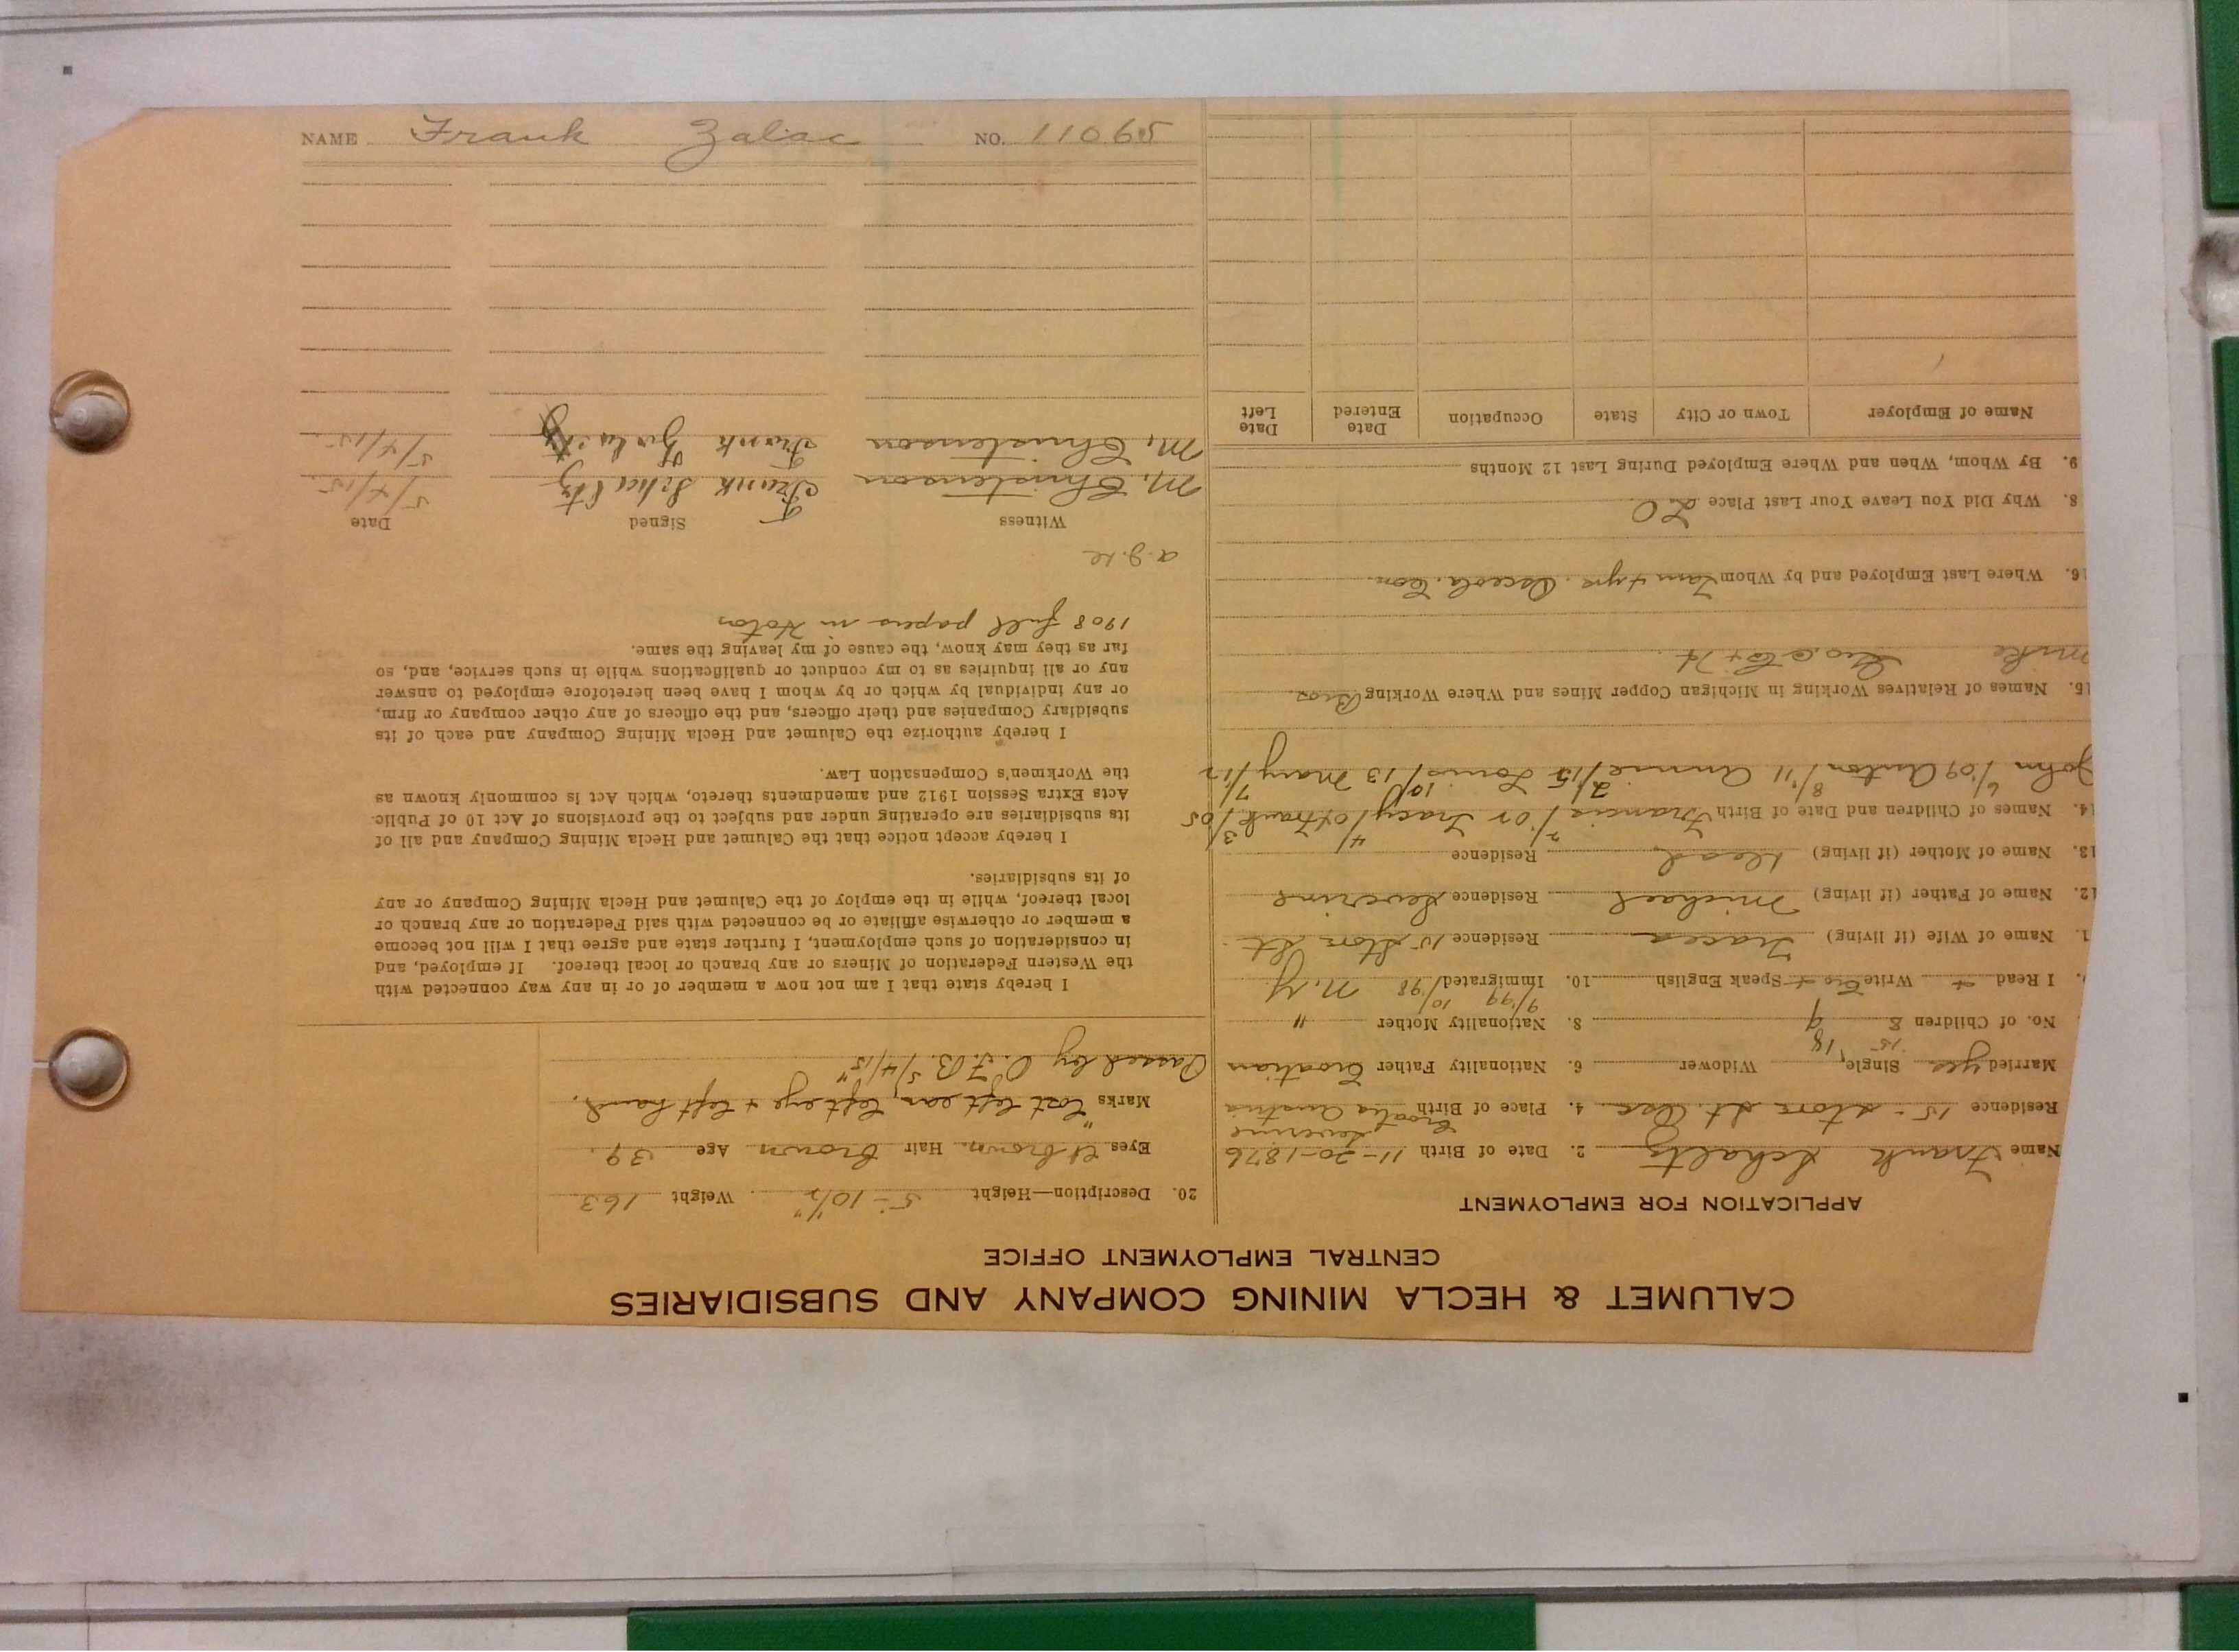 NAME Frank Zalac NO. 11065
CALUMET & HECLA MINING COMPANY AND SUBSIDIARIES
CENTRAL EMPLOYMENT OFFICE
APPLICATION FOR EMPLOYMENT
Name Frank Schaltz 2. Date of Birth 11-20-1876
Severine
Residence 15 - Stone St. Osc. 4. Place of Birth Croatia Austria
Married yes Single Widower 6. Nationality Father Croatian
No. of Children 8 9 8. Nationality Mother "
I Read + Write Cro + Speak English 10. Immigrated 10/98 N.Y.
9/99
1. Name of Wife (if living) Tracea Residence 15 Stone St.
12. Name of Father (if living) Michael Residence Severine
13. Name of Mother (if living) Dead Residence
14. Names of Children and Date of Birth Francis Tracy Frank 3/05
John 6/09 Anton 8/11 Annie 2/15 Louis 10/13 Mary 7/12
15. Names of Relatives Working in Michigan Copper Mines and Where Working Bros
Mike Geo. C + H
16. Where Last Employed and by Whom Tam 4 yrs. Osceola Con.
8. Why Did You Leave Your Last Place LO
9. By Whom, When and Where Employed During Last 12 Months
Name of Employer Town or City State Occupation Date Entered Date Left
20. Description—Height 5'-10½" Weight 163
Eyes Lt brown. Hair Brown Age 39.
Marks "Lost left ear, left eye + left hand."
Passed by O.F.B. 5/4/15
I hereby state that I am not now a member of or in any way connected with
the Western Federation of Miners or any branch or local thereof. If employed, and
in consideration of such employment, I further state and agree that I will not become
a member or otherwise affiliate or be connected with said Federation or any branch or
local thereof, while in the employ of the Calumet and Hecla Mining Company or any
of its subsidiaries.
I hereby accept notice that the Calumet and Hecla Mining Company and all of
its subsidiaries are operating under and subject to the provisions of Act 10 of Public
Acts Extra Session 1912 and amendments thereto, which Act is commonly known as
the Workmen's Compensation Law.
I hereby authorize the Calumet and Hecla Mining Company and each of its
subsidiary Companies and their officers, and the officers of any other company or firm,
or any individual by which or by whom I have been heretofore employed to answer
any or all inquiries as to my conduct or qualifications while in such service, and, so
far as they may know, the cause of my leaving the same.
1908 full papers in Hoton
Witness Signed Date
M. Christenson Frank Schaltz 5/4/15
M. Christenson Frank 5/4/15